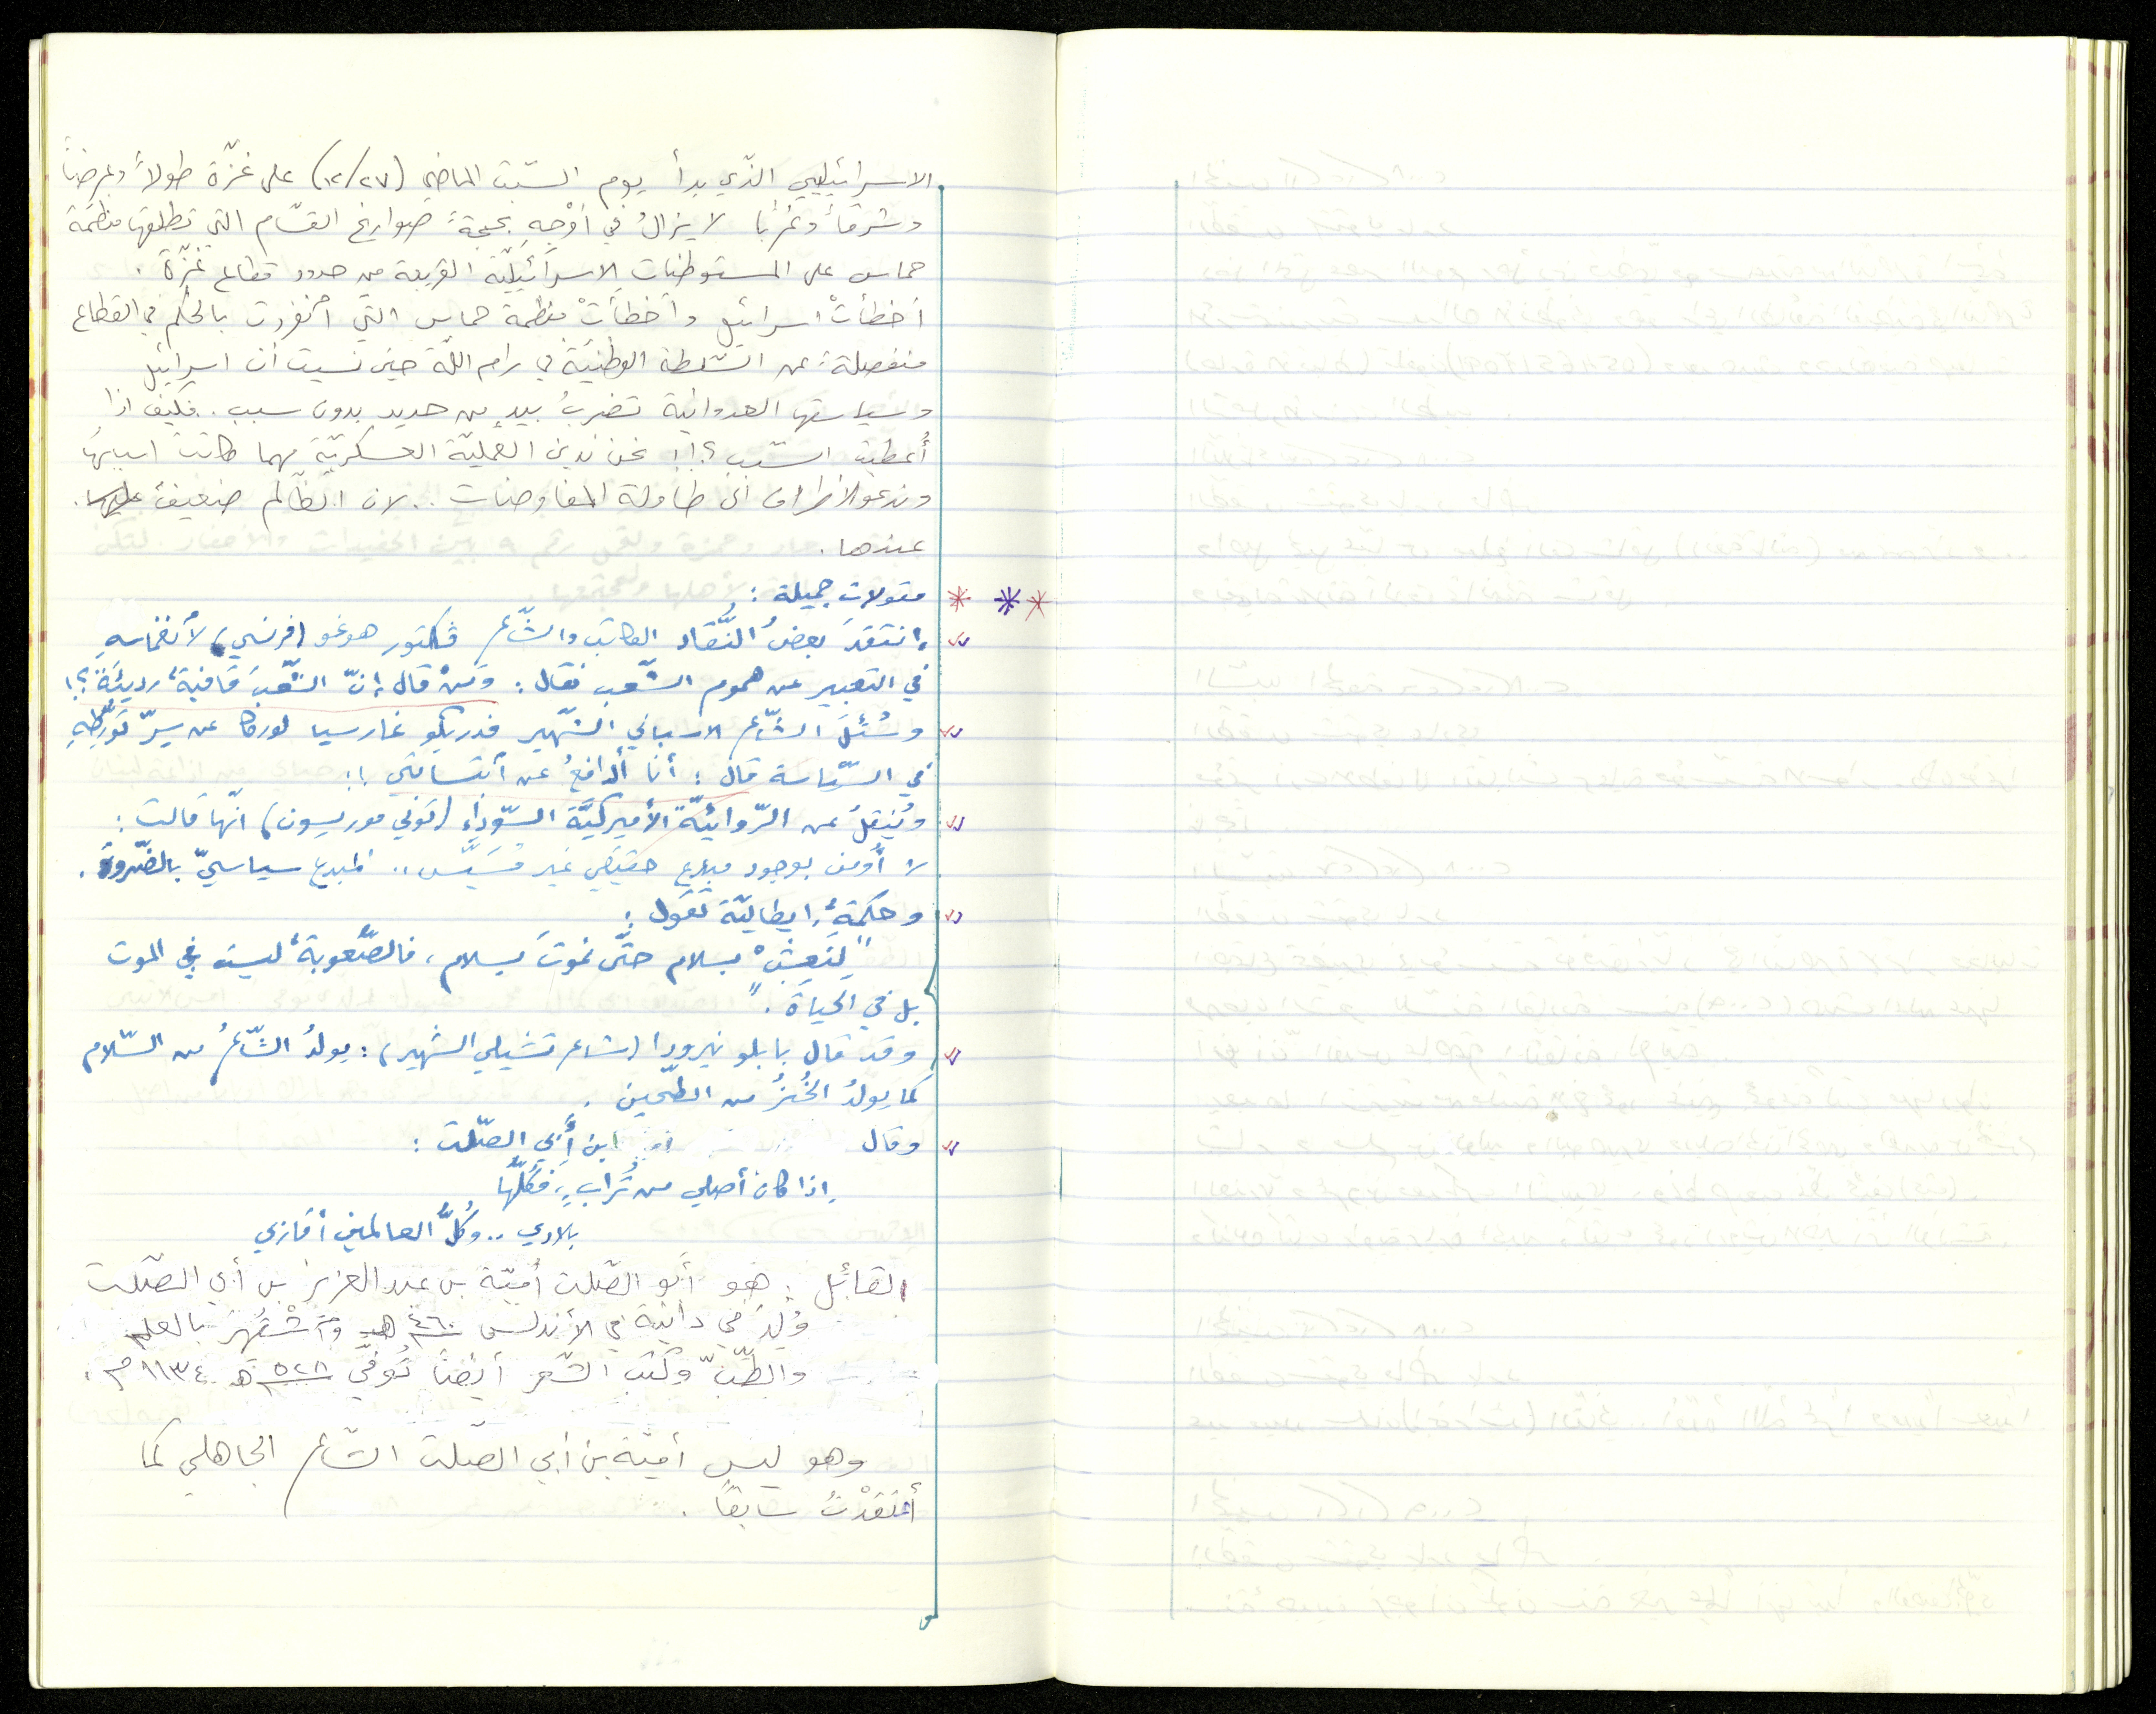 الاسرائيليي الذّي بدأ يوم السّبت الماضي (١٢/٢٧) على غزّة طولاً وعرضاً
وشرقاً وغرباً لا يزالُ في أوْجِهِ بحجةِ صواريخ القسّام التي تطلقها منظمّة
حماس على المستوطنات الاسرائيليّة القريبة من حدود قطاع غزّة .
أخطأتْ اسرائيل وأخطأتْ منظمة حماس التي أنفردت بالحكم في القطاع
منفصلةً عن السّلطة الوطنيّة في رام اللّه حين نسيت أن اسرائيل
وسياستها العدوانية تضربُ بيدٍ من حديد بدون سبب . فكيف اذا
أُعطيت السّبب ؟!! نحن ندين العمليّة العسكريّة مهما كانت اسبابها
وندعو الاطراف الى طاولة المفاوضات .. لان الظّالم ضعيفٌ
عندها .
مقولات جميلة :
إنتقدَ بعضُ النُّقّاد الكاتب والشّاعر ڤكتور هوغو (فرنسي) لأنغماسهِ
في التعبير عن هموم الشّعب فقال : ومَنْ قال إنّ الشّعبَ قافيةٌ رديئة ؟!
وسُئلَ الشّاعر الاسباني الشّهير فدريكو غارسيا لوركا عن سِرّ تورّطِهِ
في السّياسة قال : أنا أُدافعُ عن أبتسامتي !!
ويُنقلُ عن الرّوائيّة الأميركيّة السّوداء (توني موريسون) انّها قالت :
لا أُومن بوجود مبدع حقيقي غير مُسَيّس .. المبدع سياسيّ بالضّرورة .
وحكمةٌ إيطاليّة تقول :
"لِنَعِشْ بسلام حتّى نموتَ بسلام ، فالصّعوبةُ ليست في الموت
بل في الحياة ."
وقد قال بابلو نيرودا (شاعر تشيلي الشهير) : يولدُ الشّاعرُ من السّلام
كما يولدُ الخُبزُ من الطّحين .
وقال ابن أبي الصّلت :
إذا كان أصلي من تُراب ,, فكلّها
بلادي .. وكُلُّ العالمين أقاربي
القائل : هو أبو الصّلت أميّة بن عبد العزيز بن أبي الصّلت
وُلِدَ في دانية في الأندلس ٤٦٠ هـ وأشْتُهرَ بالعلم
والطّبّ وكتب الشّعر أيضاً تُوفيّ ٥٢٨ هـ ١١٣٤ م .
وهو ليس أميّة بن أبي الصّلت الشّاعر الجاهلي كما
أعتقدْتُ سابقاً .